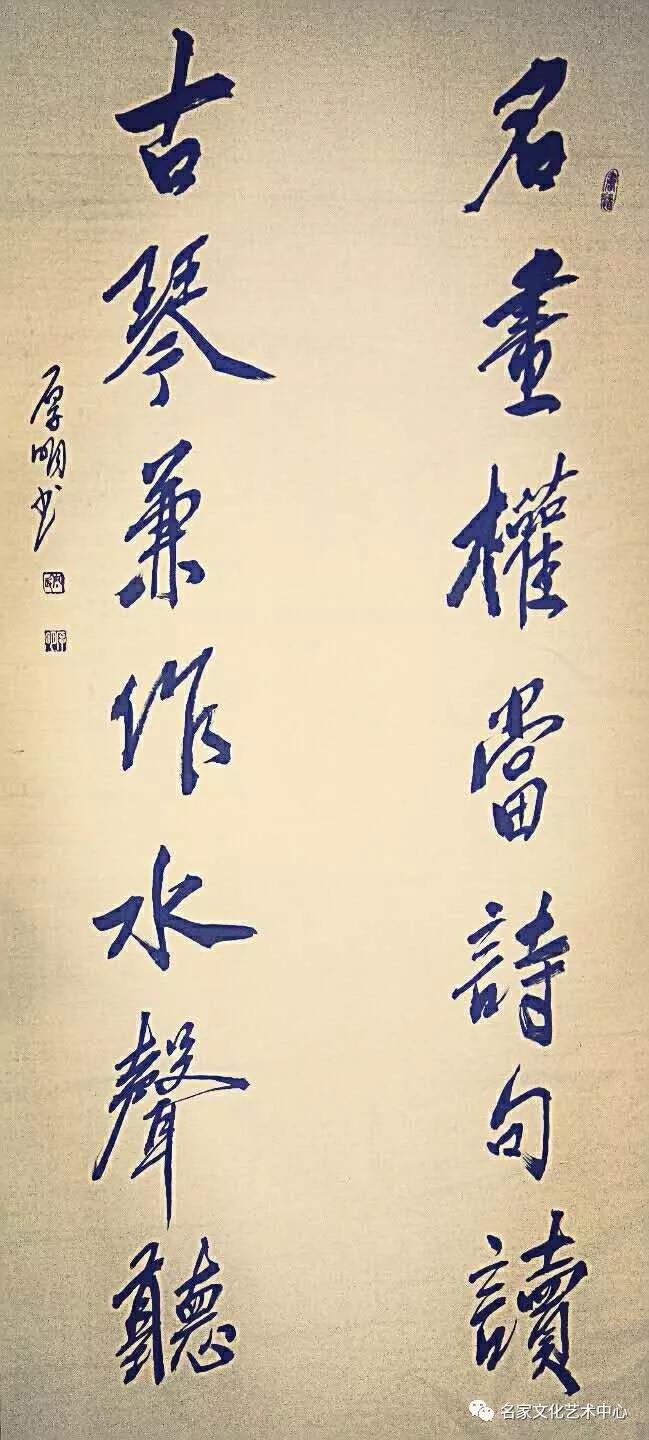 名畫權當詩句讀
古琴兼作水聲聽
厚明书
名家文化艺术中心